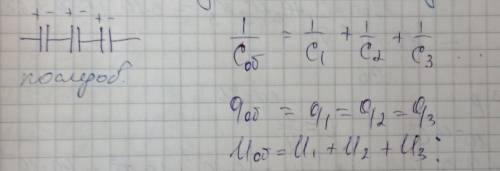 + - + - + -
послед.
1/Cоб = 1/C1 + 1/C2 + 1/C3
qоб = q1 = q2 = q3
Uоб = U1 + U2 + U3